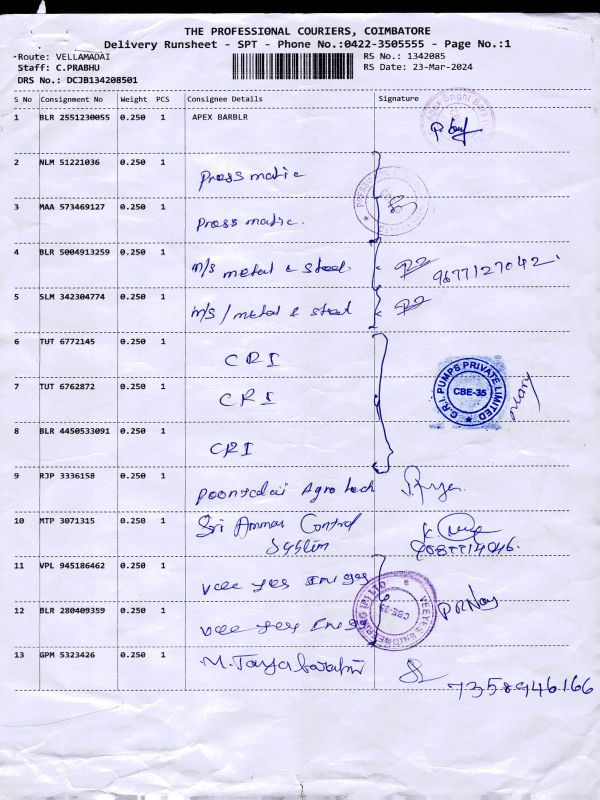 THE PROFESSIONAL COURIERS, COIMBATORE
Delivery Runsheet - SPT - Phone No.:0422-3505555 - Page No.:1
Route: VELLAMADAI
Staff: C.PRABHU
DRS No.: DCJB134208501
RS No.: 1342085
RS Date: 23-Mar-2024
S No Consignment No Weight PCS Consignee Details Signature
1 BLR 2551230055 0.250 1 APEX BARBLR
2 NLM 51221036 0.250 1 Pressmatic
3 MAA 573469127 0.250 1 Pressmatic.
4 BLR 5004913259 0.250 1 M/s metal & steel 9677127042
5 SLM 342304774 0.250 1 M/s / metal & steel
6 TUT 6772145 0.250 1 CRI
7 TUT 6762872 0.250 1 CRI
C.R.I. PUMPS PRIVATE LIMITED
CBE-35
8 BLR 4450533091 0.250 1 CRI
9 RJP 3336158 0.250 1 Agro tech
10 MTP 3071315 0.250 1 Sri Amman Control
System
11 VPL 945186462 0.250 1 Vee yes
12 BLR 280409359 0.250 1 Vee yes
CBE-35
13 GPM 5323426 0.250 1 M.
7358946166